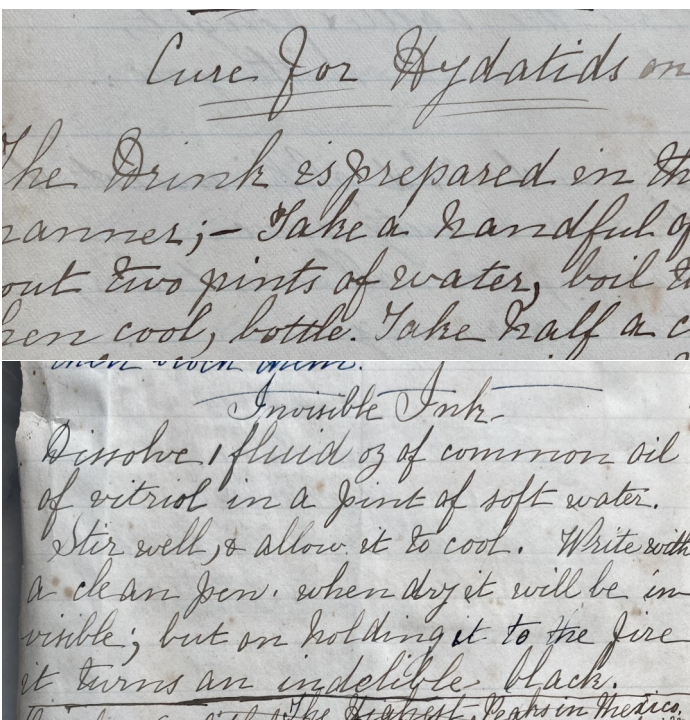 Cure for Hydatids on
The Drink is prepared in th
anner;- Take a handful of
out two pints of water, boil t
hen cool, bottle. Take half a c
then them.
Invisible Ink
Dissolve 1 fluid oz of common oil
of vitriol in a pint of soft water.
Stir well, & allow it to cool. Write with
a clean pen. when dry it will be in
visible; but on holding it to the fire
it turns an indelible black.
The Highest Peaks in Mexico.